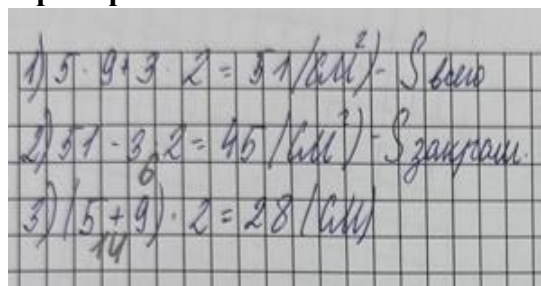 1) 5 · 9 + 3 · 2 = 51 (см²) - S всего
2) 51 - 3 · 2 = 45 (см²) - S закраш.
6
3) (5 + 9) · 2 = 28 (см)
14